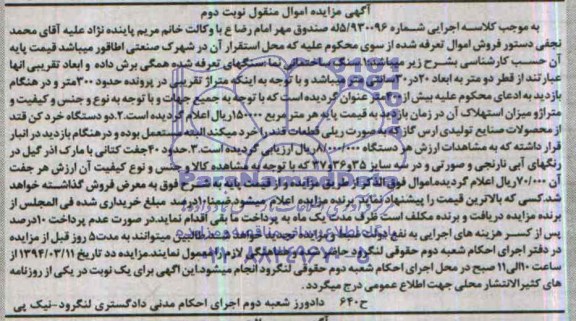 آگهی مزایده اموال منقول نوبت دوم
به موجب کلاسه اجرایی شماره ۵/۹۳۰۰۹۶له صندوق مهر امام رضا ع با وکالت خانم مریم پاینده نژاد علیه آقای محمد
نجفی دستور فروش اموال تعرفه شده از سوی محکوم علیه که محل استقرار آن در شهرک صنعتی اطاقور میباشد قیمت پایه
آن حسب کارشناسی بشرح زیر میباشد:۱.سنگ ساختمانی نما سنگهای تعرفه شده همگی برش داده و ابعاد تقریبی آنها
عبارتند از قطر دو متر به ابعاد ۲۰در۳۰سانت میباشد و با توجه به اینکه متراژ تقریبی در پرونده حدود ۳۰۰متر و در هنگام
بازدید به ادعای محکوم علیه بیش از متر عنوان گردیده است که با توجه به جمیع جهات و با توجه به نوع و جنس و کیفیت و
متراژو میزان استهلاک آن در زمان بازدید به قیمت پایه هر متر مربع ۱۵۰۰۰۰ریال اعلام گردیده است.۲.دو دستگاه خرد کن قند
از محصولات صنایع تولیدی ارس گاز که به صورت ریلی قطعات قند را خرد میکند البته مستعمل بوده و در هنگام بازدید در انبار
قرار داشته که به مشاهدات ارزش هر دستگاه ۸/۰۰۰/۰۰۰ریال ارزیابی گردیده است.۳.حدود ۴۰جفت کتانی با مارک آذر گیل در
رنگهای آبی نارنجی و صورتی و در سه سایز ۳۵و۳۶و۳۷ که با توجه به مشاهده کالا و جنس و نوع کیفیت آن ارزش هر جفت
آن ۷۰/۰۰۰ریال اعلام گردیده.اموال فوق الذکر از طریق مزایده و از قیمت پایه به شرح فوق به معرض فروش گذاشته خواهد
شد.کسی که بالاترین قیمت را پیشنهاد نماید برنده مزایده اعلام میشود.ضمنا درصد مبلغ خریداری شده فی المجلس از
برنده مزایده دریافت و برنده مکلف است ظرف مدت یک ماه به پرداخت ما بقی اقدام نماید.در صورت عدم پرداخت ۱۰درصد
پس از کسر هزینه های اجرایی به نفع دولت ضبط و مزایده تجدید میشود و متقاضیین میتوانند به مدت ۵ روز قبل از مزایده
در دفتر اجرای احکام شعبه دوم حقوقی لنگرود حاضر لازم را معمول نمایند.مزایده در تاریخ ۱۳۹۴/۰۳/۱۱ از
ساعت ۱۰الی۱۱ صبح در محل اجرای احکام شعبه دوم حقوقی لنگرود انجام میشود.این آگهی برای یک نوبت در یکی از روزنامه
های کثیرالانتشار محلی جهت اطلاع عمومی درج میگردد.
ح۶۴۰ دادورز شعبه دوم اجرای احکام مدنی دادگستری لنگرود-نیک پی
ParsNamadData
۰۲۱-۸۸۳۴۹۶۷۰